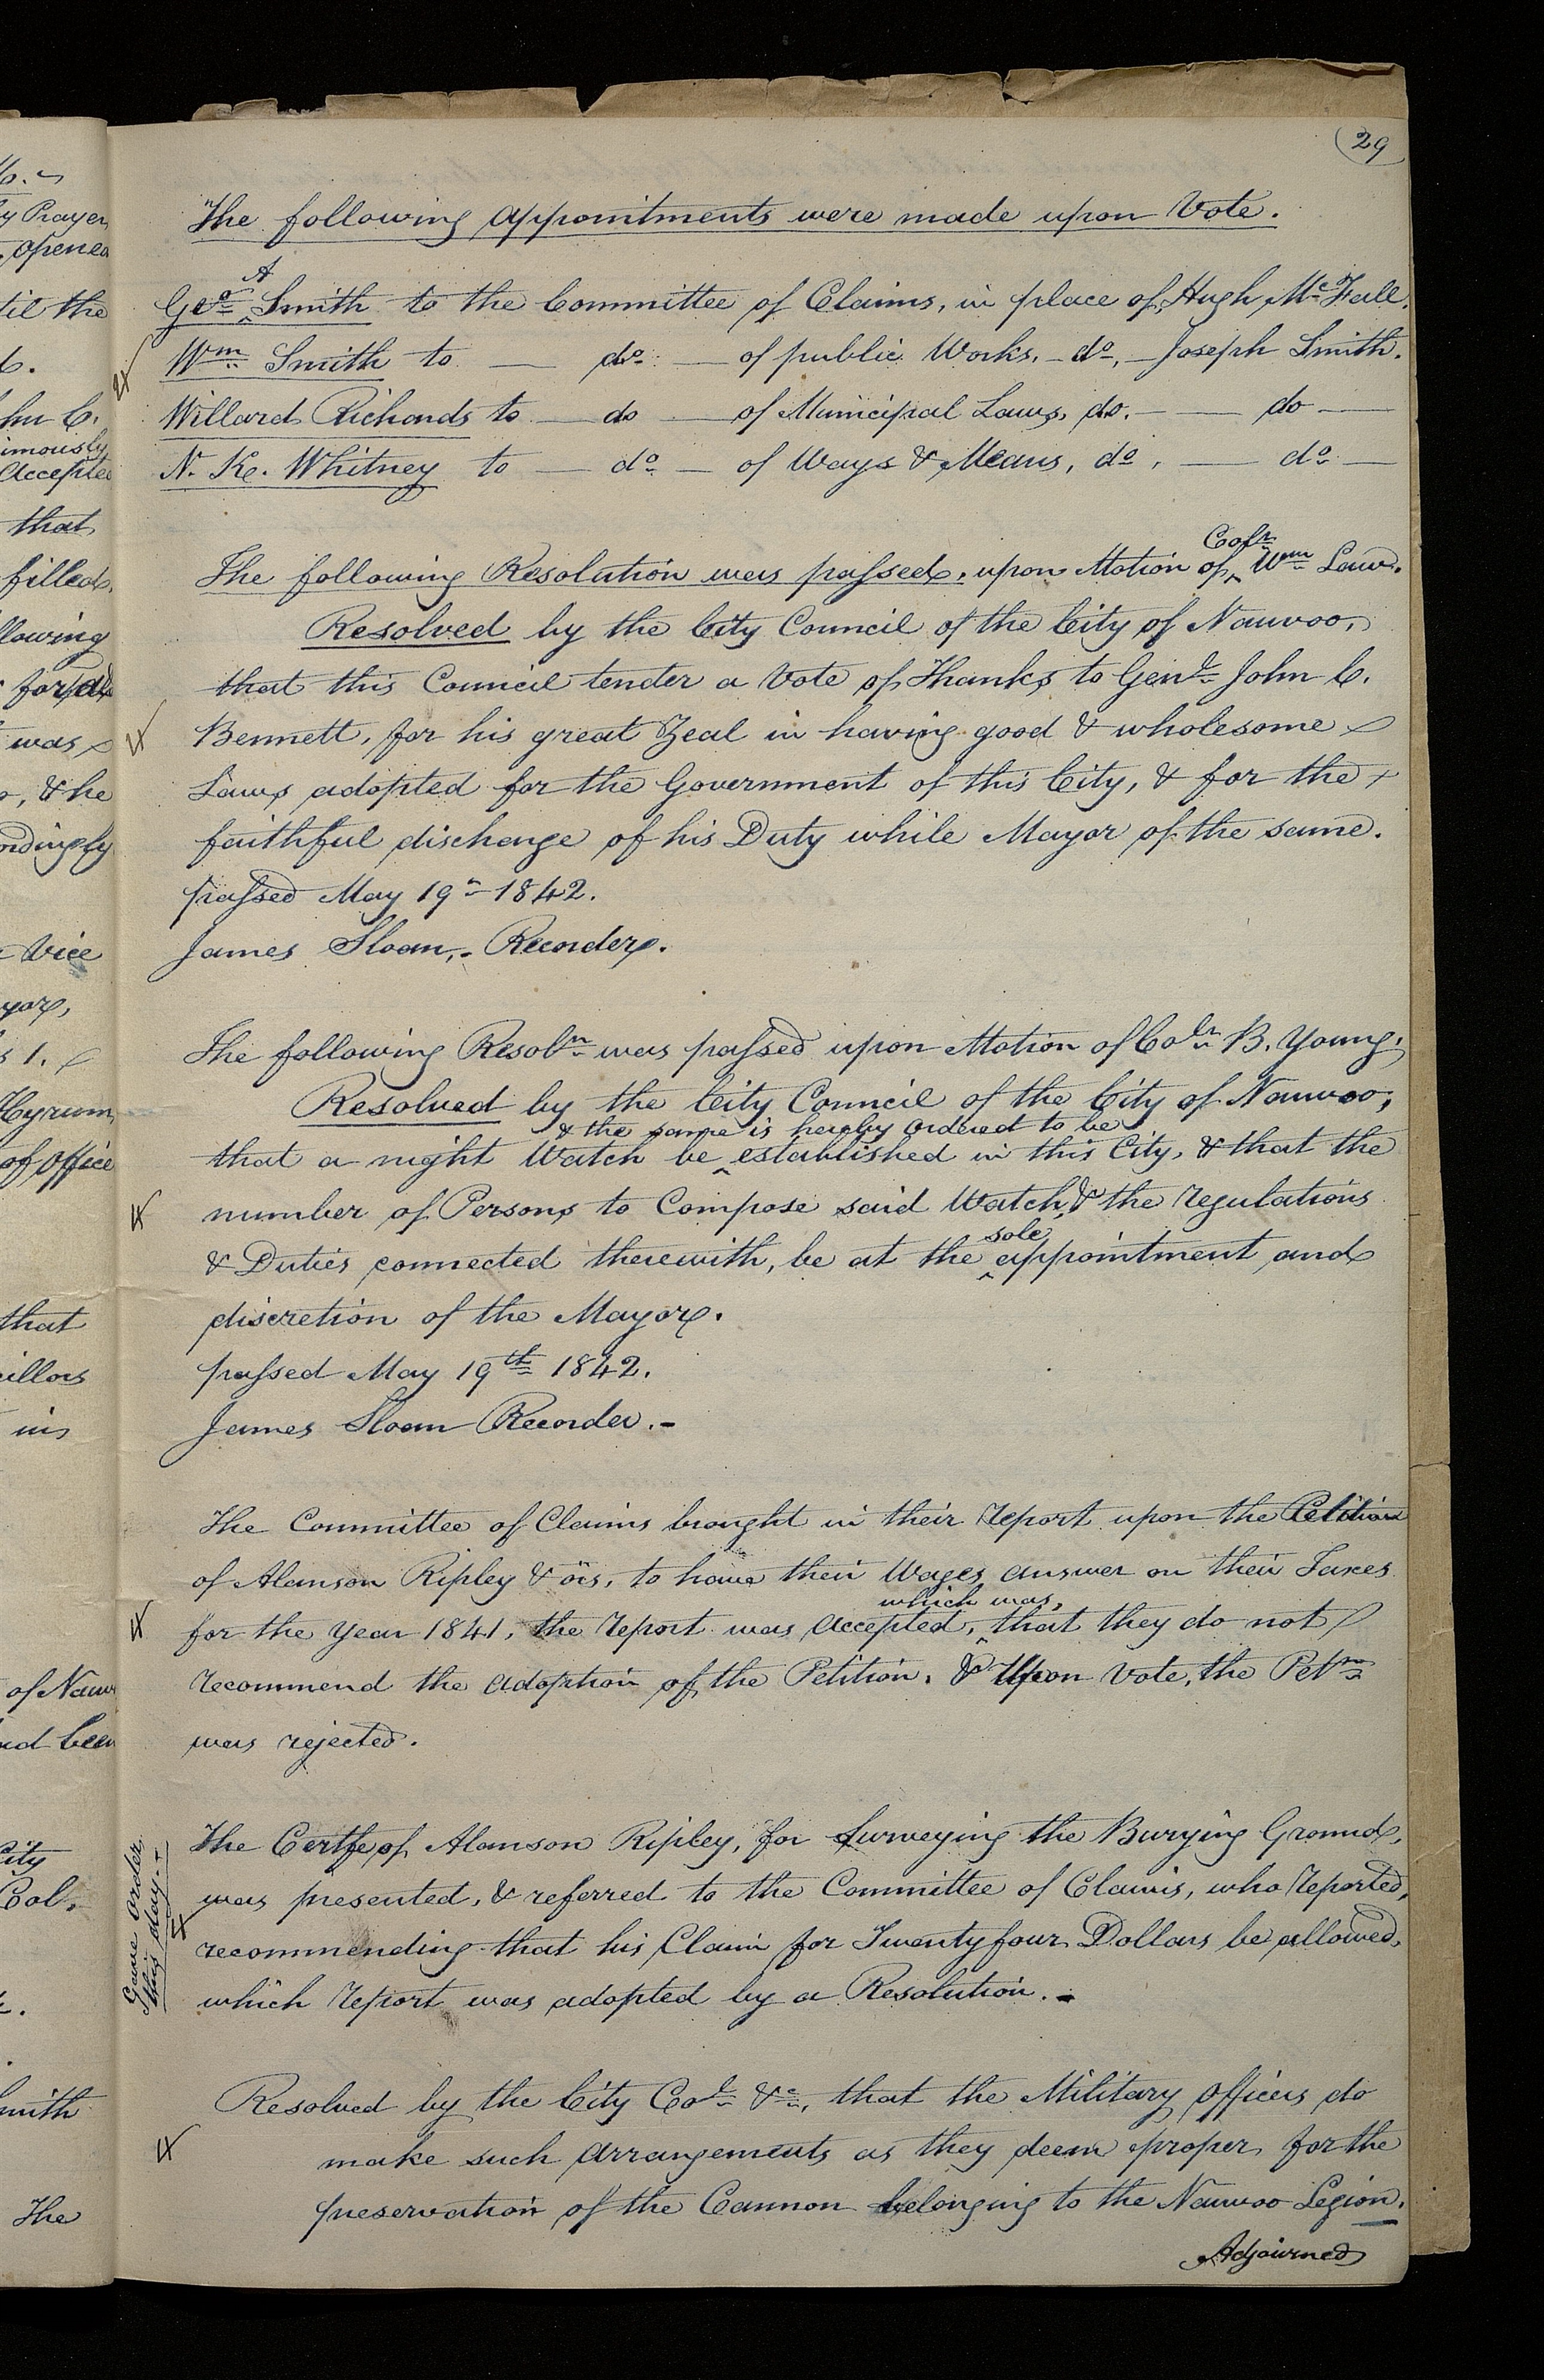 29
The following appointments were made upon Vote.
Geo. A Smith to the Committee of Claims, in place of Hugh McFall.
Wm. Smith to — do. — of public Works, - do, - Joseph Smith.
Willard Richards to — do — of Municipal Laws, do. — do —
N. K. Whitney to — do. — of Ways & Means, do, — do. —
The following Resolution was passed, upon Motion of Colr. Wm. Law.
Resolved by the City Council of the City of Nauvoo,
that this Council tender a Vote of Thanks to Genl. John C.
Bennett, for his great Zeal in having good & wholesome
Laws adopted for the Government of this City, & for the
faithful discharge of his Duty while Mayor of the same.
passed May 19th 1842.
James Sloan, - Recorder.
The following Resoln. was passed upon Motion of Colr. B. Young;
Resolved by the City Council of the City of Nauvoo,
that a night Watch be & the same is hereby ordered to be established in this City, & that the
number of Persons to Compose said Watch, & the regulations
& Duties connected therewith, be at the sole appointment and
discretion of the Mayor.
passed May 19th 1842.
James Sloan Recorder. -
The Committee of Claims brought in their report upon the Petition
of Alanson Ripley & ors, to have their Wages answer on their Taxes
for the Year 1841, the report was accepted, which was, that they do not
recommend the adoption of the Petition. & Upon Vote, the Petn.
was rejected.
Gave order
this day. +
The Certfe of Alanson Ripley, for Surveying the Burying Ground,
was presented, & referred to the Committee of Claims, who reported,
recommending that his Claim for Twenty four Dollars be allowed,
which report was adopted by a Resolution. -
Resolved by the City Col. &c., that the Military officers do
make such arrangements as they deem proper, for the
preservation of the Cannon belonging to the Nauvoo Legion.
Adjourned
y Prayer
opened
til the
that
filled
llowing
was
, & he
ordingly
Vice
yor,
Hyrum
of office
that
cillors
in
of Nauv
nd been
City
Col.
mith
The